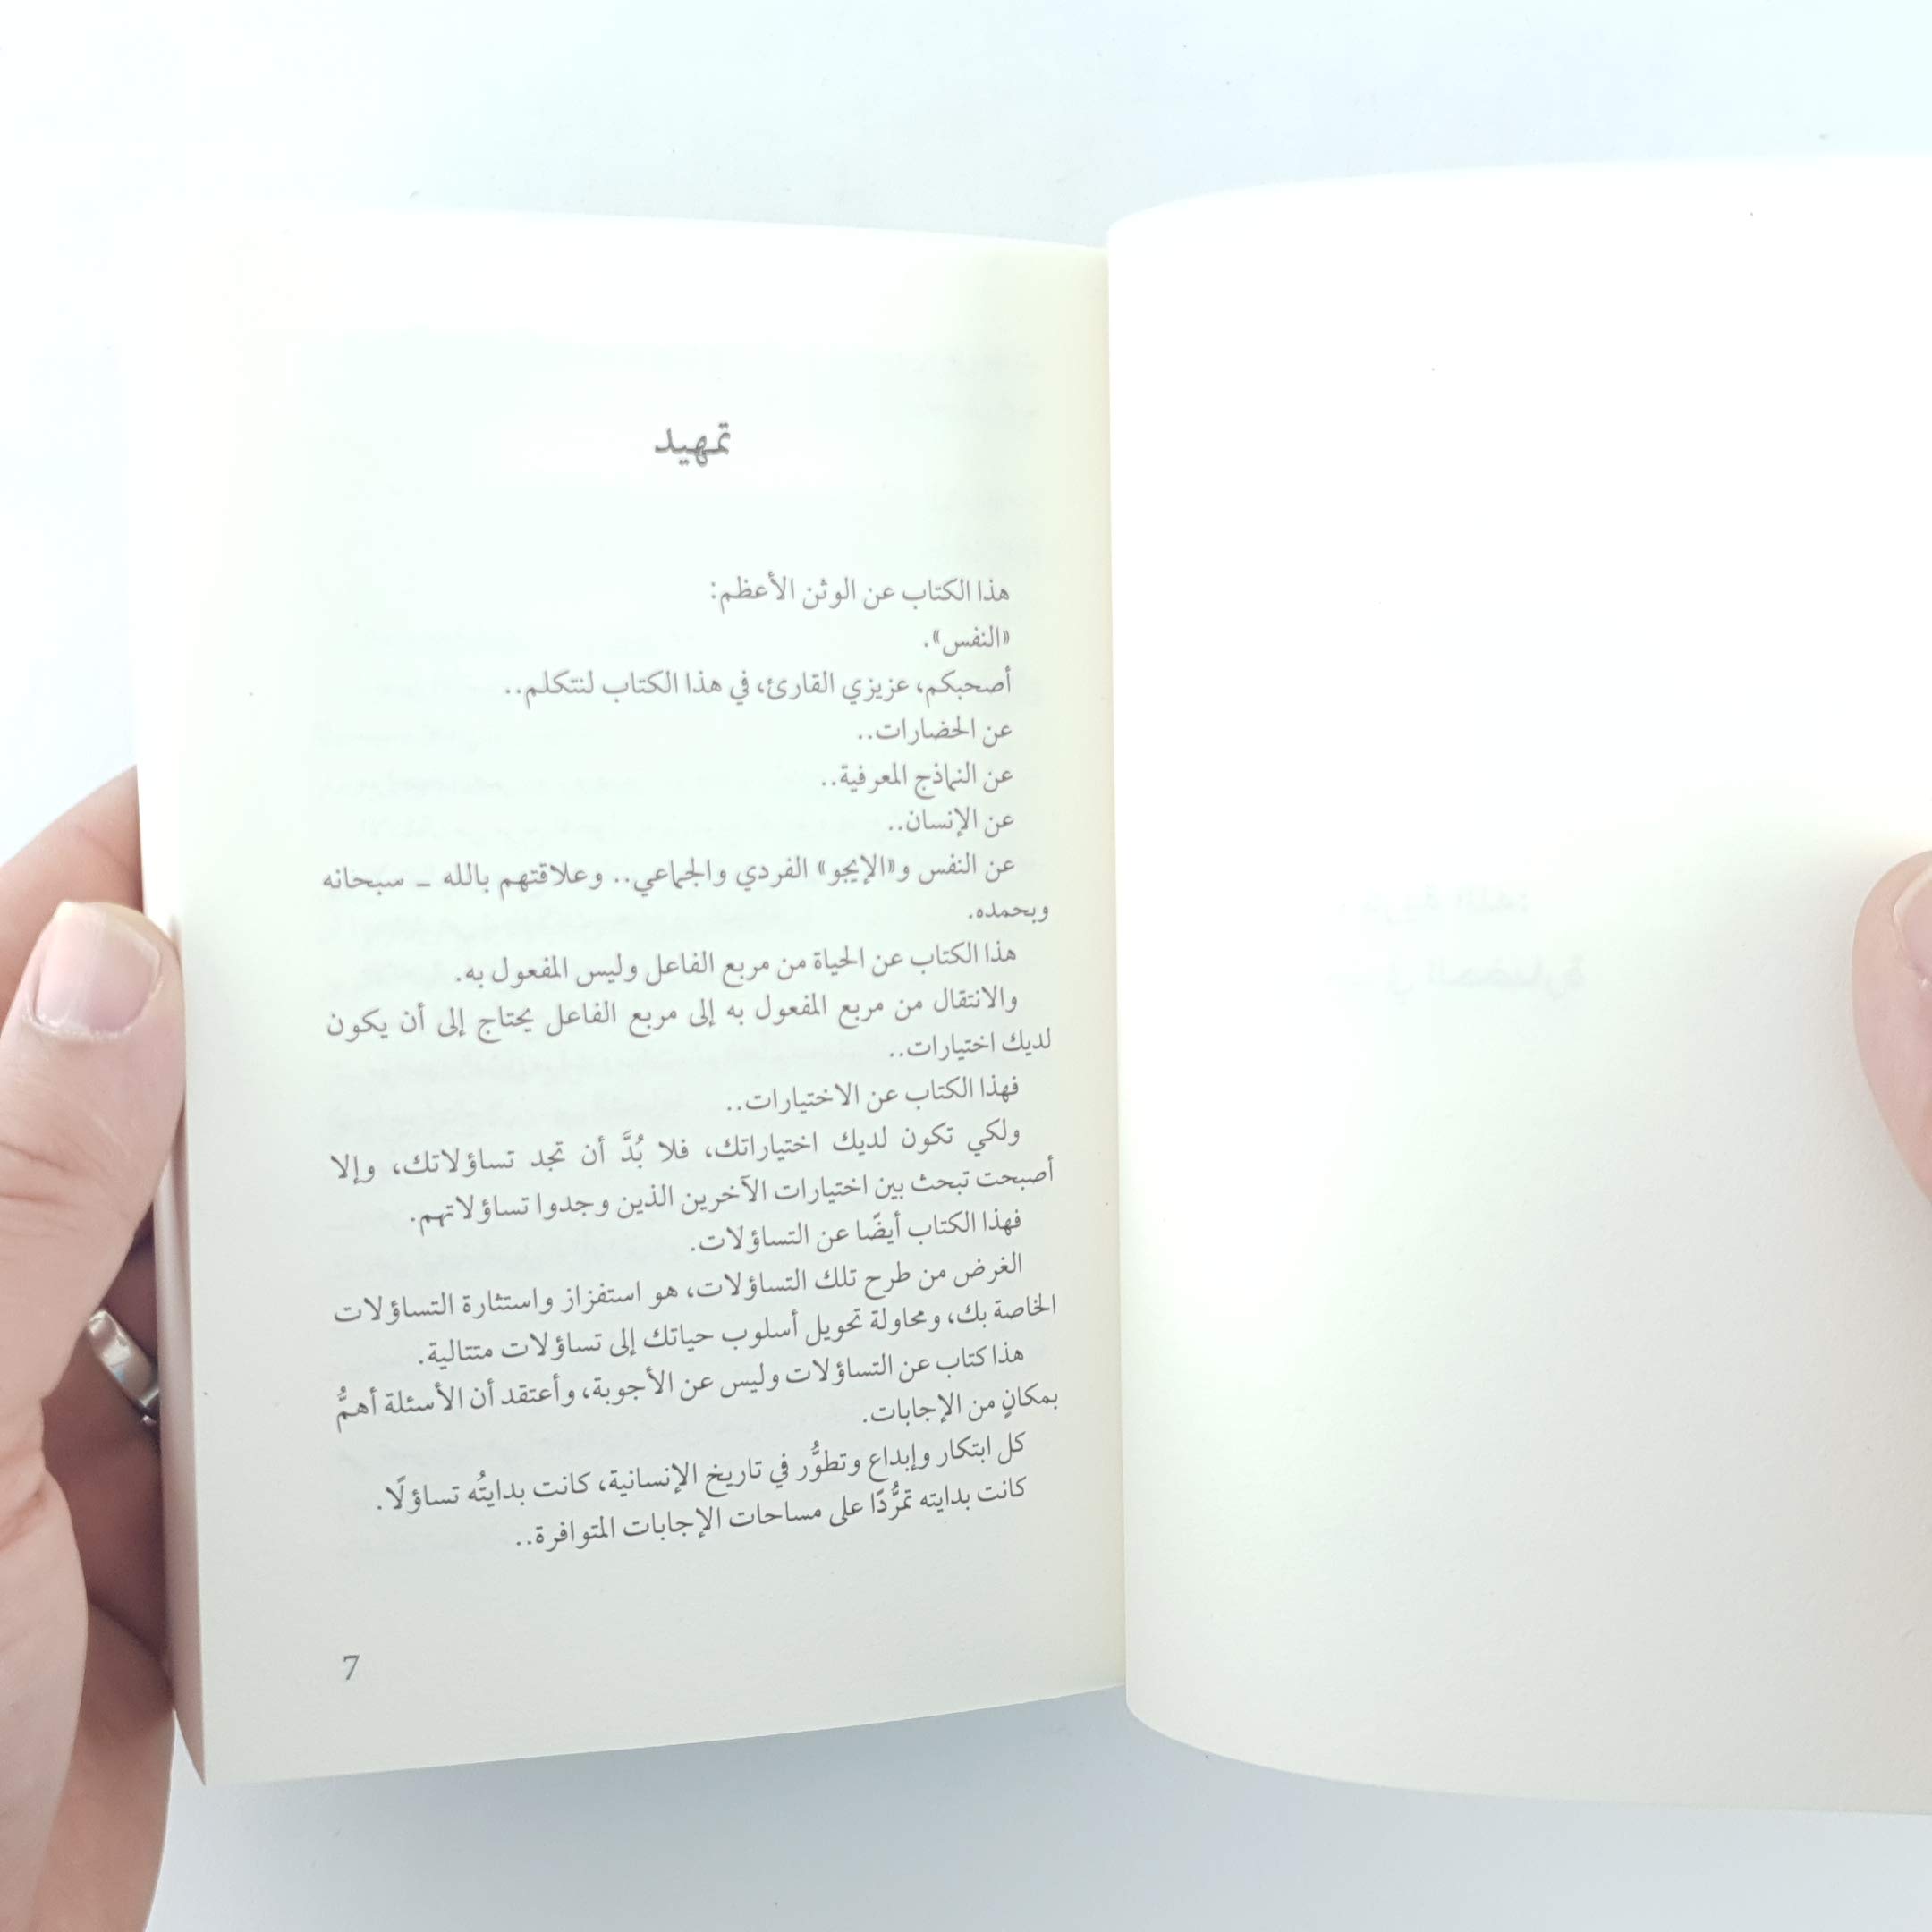 تمهيد
هذا الكتاب عن الوثن الأعظم:
«النفس».
أصحبكم، عزيزي القارئ، في هذا الكتاب لنتكلم..
عن الحضارات..
عن النماذج المعرفية..
عن الإنسان..
عن النفس و«الإيجو» الفردي والجماعي.. وعلاقتهم بالله ــ سبحانه
وبحمده.
هذا الكتاب عن الحياة من مربع الفاعل وليس المفعول به.
والانتقال من مربع المفعول به إلى مربع الفاعل يحتاج إلى أن يكون
لديك اختيارات..
فهذا الكتاب عن الاختيارات..
ولكي تكون لديك اختياراتك، فلا بُدَّ أن تجد تساؤلاتك، وإلا
أصبحت تبحث بين اختيارات الآخرين الذين وجدوا تساؤلاتهم.
فهذا الكتاب أيضًا عن التساؤلات.
الغرض من طرح تلك التساؤلات، هو استفزاز واستثارة التساؤلات
الخاصة بك، ومحاولة تحويل أسلوب حياتك إلى تساؤلات متتالية.
هذا كتاب عن التساؤلات وليس عن الأجوبة، وأعتقد أن الأسئلة أهمُّ
بمكانٍ من الإجابات.
كل ابتكار وإبداع وتطوُّر في تاريخ الإنسانية، كانت بدايتُه تساؤلًا.
كانت بدايته تمرُّدًا على مساحات الإجابات المتوافرة..
7